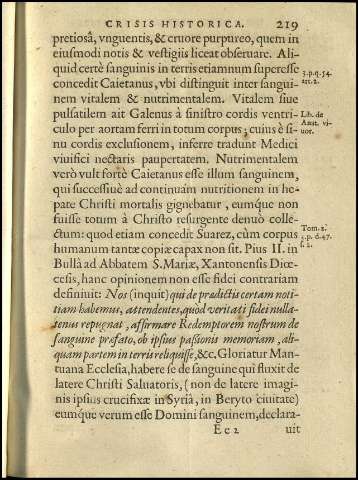 CRISIS HISTORICA. 219
pretiosâ, vnguentis, & cruore purpureo, quem in
eiusmodi notis & vestigiis liceat obseruare. Ali-
quid certè sanguinis in terris etiamnum superesse
concedit Caietanus, vbi distinguit inter sangui-
nem vitalem & nutrimentalem. Vitalem siue
pulsatilem ait Galenus à sinistro cordis ventri-
culo per aortam ferri in totum corpus; cuius è si-
nu cordis exclusionem, inferre tradunt Medici
viuifici nectaris paupertatem. Nutrimentalem
verò vult fortè Caietanus esse illum sanguinem,
qui successiuè ad continuam nutritionem in he-
pate Christi mortalis gignebatur, eumque non
fuisse totum à Christo resurgente denuò colle-
ctum: quod etiam concedit Suarez, cùm corpus
humanum tantæ copiæ capax non sit. Pius II. in
Bullâ ad Abbatem S. Mariæ, Xantonensis Diœ-
cesis, hanc opinionem non esse fidei contrariam
definiuit: Nos (inquit) qui de prædictis certam noti-
tiam habemus, attendentes, quòd veritati fidei nulla-
tenus repugnat, affirmare Redemptorem nostrum de
sanguine præfato, ob ipsius passionis memoriam, ali-
quam partem in terris reliquisse, &c. Gloriatur Man-
tuana Ecclesia, habere se de sanguine qui fluxit de
latere Christi Saluatoris, (non de latere imagi-
nis ipsius crucifixæ in Syriâ, in Beryto ciuitate)
eumque verum esse Domini sanguinem, declara-
Ee 2 uit
3. p. q. 54.
art. 2.
Lib. de
Anat. vi-
uor.
Tom. 2.
3. p. d. 47.
s. 2.